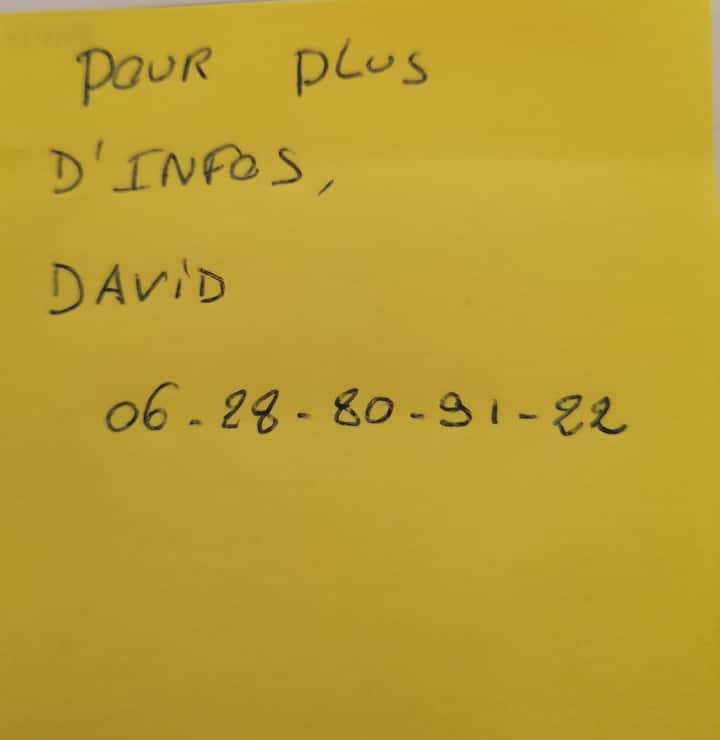 POUR PLUS
D'INFOS,
DAViD
06-28-80-91-22